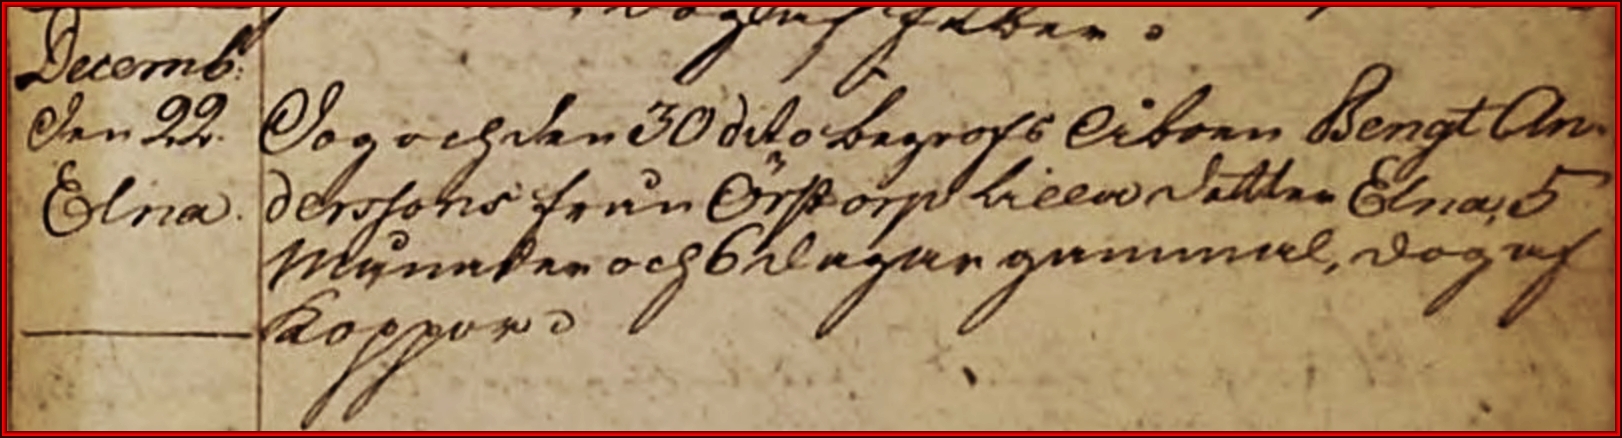 dog af feber.
Decemb:
Den 22. Dog och den 30 dito begrofs Åiboen Bengt An-
Elna. derssons från Örstorp lilla dotter Elna, 5
Månader och 6 dagar gammal, dog af
Koppor.